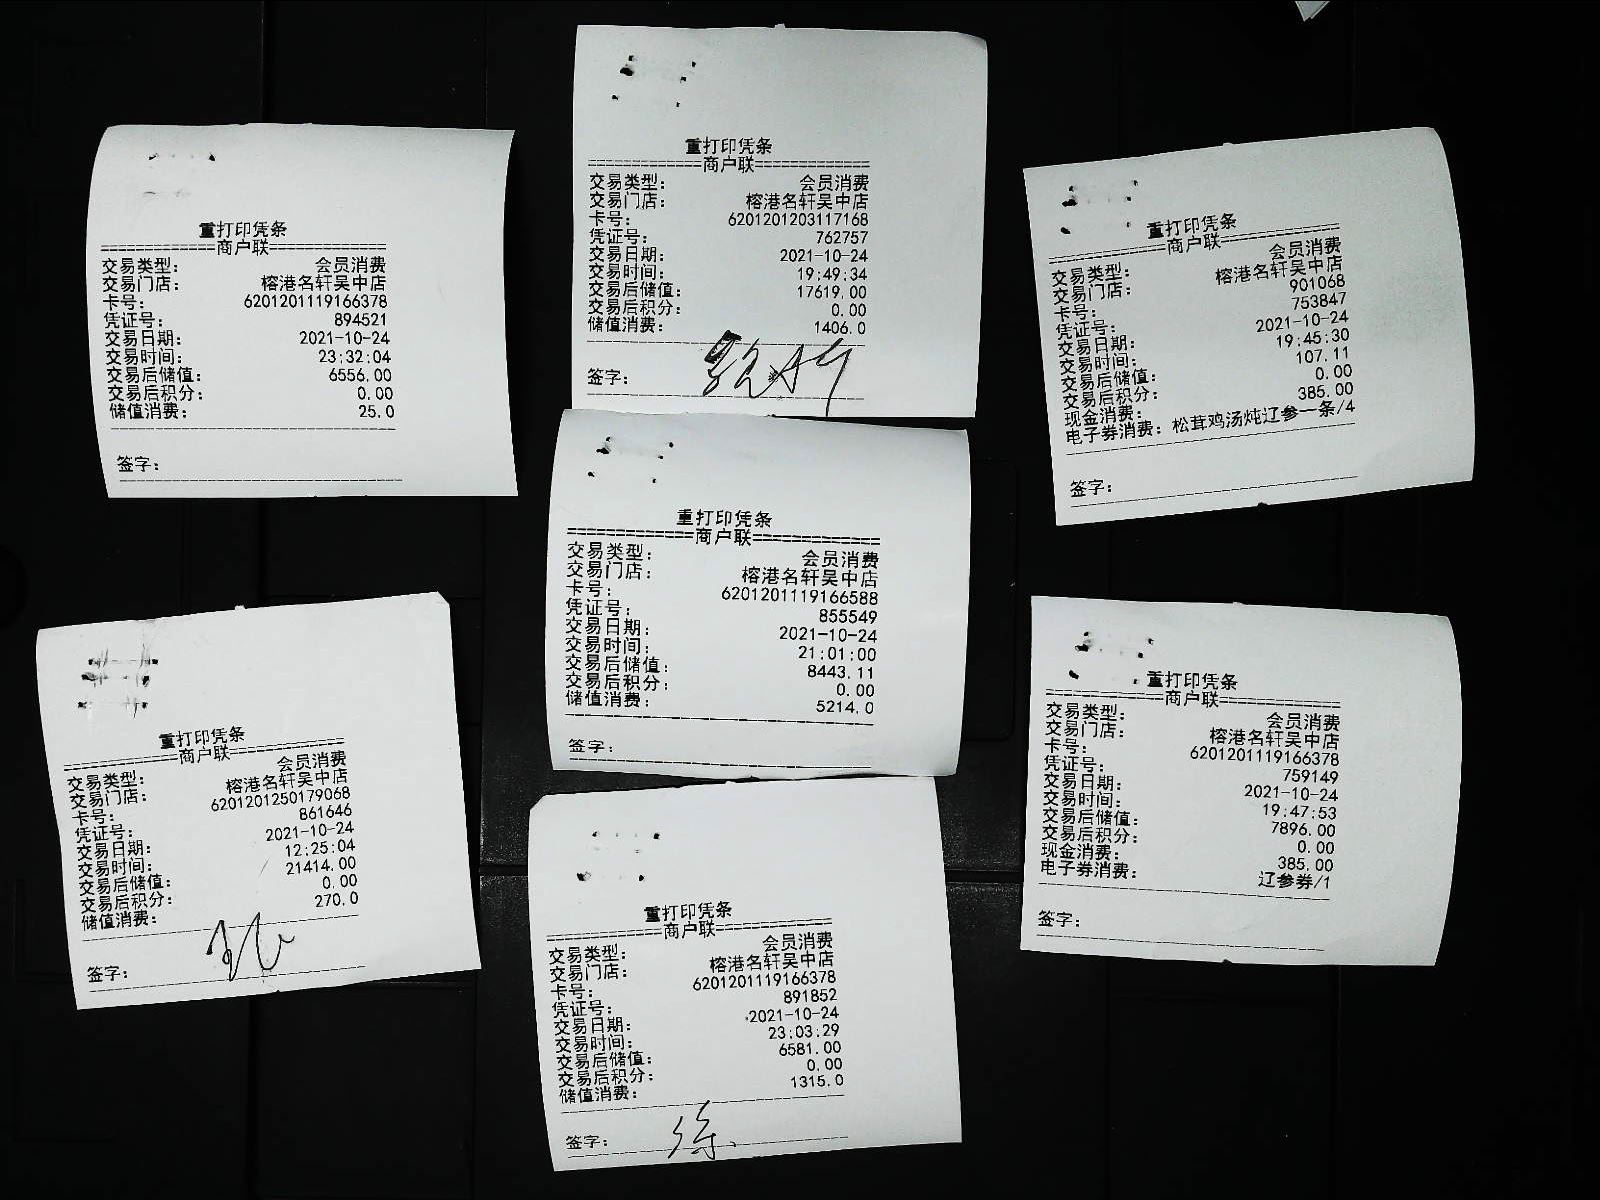 重打印凭条
==============商户联==============
交易类型： 会员消费
交易门店： 榕港名轩吴中店
卡号： 6201201119166378
凭证号： 894521
交易日期： 2021-10-24
交易时间： 23:32:04
交易后储值： 6556.00
交易后积分： 0.00
储值消费： 25.0
签字：
重打印凭条
==============商户联==============
交易类型： 会员消费
交易门店： 榕港名轩吴中店
卡号： 6201201203117168
凭证号： 762757
交易日期： 2021-10-24
交易时间： 19:49:34
交易后储值： 17619.00
交易后积分： 0.00
储值消费： 1406.0
签字：
重打印凭条
==============商户联==============
交易类型： 会员消费
交易门店： 榕港名轩吴中店
卡号： 901068
凭证号： 753847
交易日期： 2021-10-24
交易时间： 19:45:30
交易后储值： 107.11
交易后积分： 0.00
现金消费： 385.00
电子券消费： 松茸鸡汤炖辽参一条/4
签字：
重打印凭条
==============商户联==============
交易类型： 会员消费
交易门店： 榕港名轩吴中店
卡号： 6201201119166588
凭证号： 855549
交易日期： 2021-10-24
交易时间： 21:01:00
交易后储值： 8443.11
交易后积分： 0.00
储值消费： 5214.0
签字：
重打印凭条
==============商户联==============
交易类型： 会员消费
交易门店： 榕港名轩吴中店
卡号： 6201201250179068
凭证号： 861646
交易日期： 2021-10-24
交易时间： 12:25:04
交易后储值： 21414.00
交易后积分： 0.00
储值消费： 270.0
签字：
重打印凭条
==============商户联==============
交易类型： 会员消费
交易门店： 榕港名轩吴中店
卡号： 6201201119166378
凭证号： 891852
交易日期： 2021-10-24
交易时间： 23:03:29
交易后储值： 6581.00
交易后积分： 0.00
储值消费： 1315.0
签字：
重打印凭条
==============商户联==============
交易类型： 会员消费
交易门店： 榕港名轩吴中店
卡号： 6201201119166378
凭证号： 759149
交易日期： 2021-10-24
交易时间： 19:47:53
交易后储值： 7896.00
交易后积分： 0.00
现金消费： 385.00
电子券消费： 辽参券/1
签字：